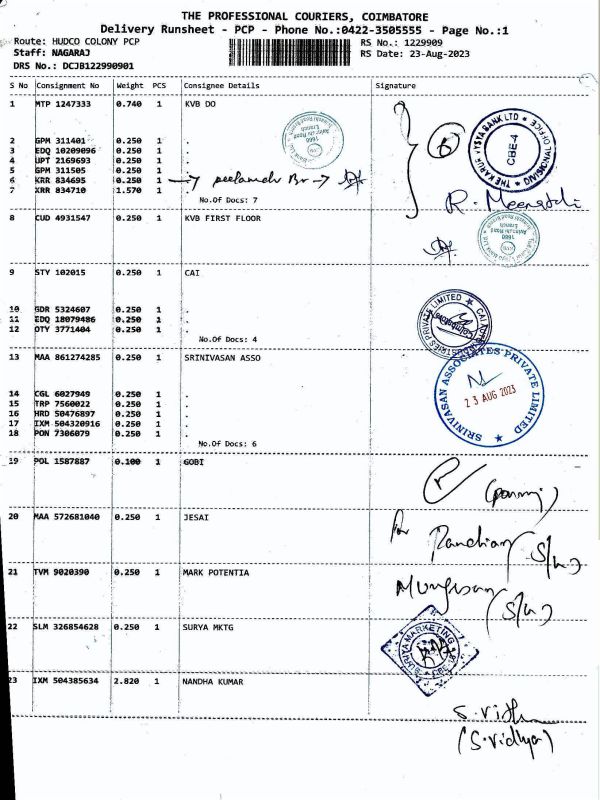 THE PROFESSIONAL COURIERS, COIMBATORE
Delivery Runsheet - PCP - Phone No.:0422-3505555 - Page No.:1
Route: HUDCO COLONY PCP RS No.: 1229909
Staff: NAGARAJ RS Date: 23-Aug-2023
DRS No.: DCJB122990901
S No Consignment No Weight PCS Consignee Details Signature
1 MTP 1247333 0.740 1 KVB DO
2 GPM 311401 0.250 1 .
3 EDQ 10209096 0.250 1 .
4 UPT 2169693 0.250 1 .
5 GPM 311505 0.250 1 .
6 KRR 834695 0.250 1
7 KRR 834710 1.570 1
No.Of Docs: 7
THE KARUR VYSYA BANK LTD
CBE-4
DIVISIONAL OFFICE
8 CUD 4931547 0.250 1 KVB FIRST FLOOR
9 STY 102015 0.250 1 CAI
10 GDR 5324607 0.250 1 .
11 EDQ 18079486 0.250 1 .
12 OTY 3771404 0.250 1 .
No.Of Docs: 4
13 MAA 861274285 0.250 1 SRINIVASAN ASSO
14 CGL 6027949 0.250 1 .
15 TRP 7560022 0.250 1 .
16 HRD 50476897 0.250 1 .
17 IXM 504320916 0.250 1 .
18 PON 7306079 0.250 1 .
No.Of Docs: 6
SRINIVASAN ASSOCIATES PRIVATE LIMITED
23 AUG 2023
19 POL 1587887 0.100 1 GOBI
20 MAA 572681040 0.250 1 JESAI
21 TVM 9020390 0.250 1 MARK POTENTIA
22 SLM 326854628 0.250 1 SURYA MKTG
23 IXM 504385634 2.820 1 NANDHA KUMAR
(S.Vidhya)